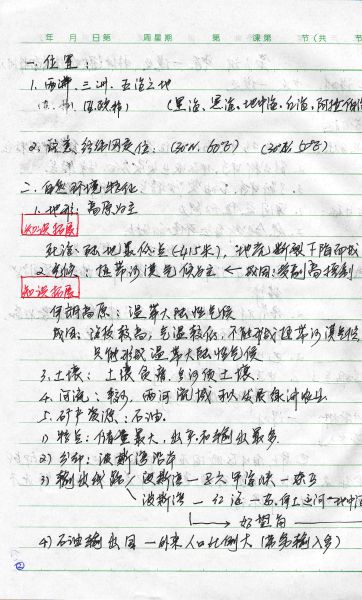 年 月 日第 周星期 课第 节(共 节
一、位置:
1. 两洋、三洲、五海之地
(黑海、里海、地中海、红海、阿拉伯海
2. 经纬网定位: (30°N, 60°E) (30°N, 50°E)
二、自然环境特征
1. 地形:高原为主
知识拓展
死海:陆地最低点(-415米),地壳断裂下陷而成
2. 气候:热带沙漠气候为主 ← 成因:受副高控制
知识拓展
伊朗高原:温带大陆性气候
成因:海拔较高,气温较低,不能形成热带沙漠气候
只能形成温带大陆性气候
3. 土壤:土壤贫瘠,多沙质土壤.
4. 河流:较少,两河流域可以发展绿洲农业
5. 矿产资源:石油.
1) 特点:储量最大、出产和输出最多
2) 分布:波斯湾沿岸
3) 输出线路 波斯湾—马六甲海峡—东亚
波斯湾—红海—苏伊士运河—地中海
好望角
4) 石油输出国—外来人口比例大(劳务输入多)